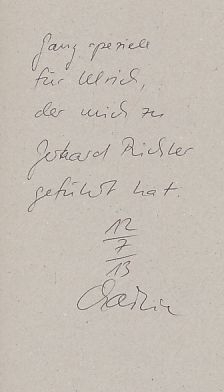 ganz speziell
für Ulrich,
der mich zu
Gerhard Richter
geführt hat.
12
7
13